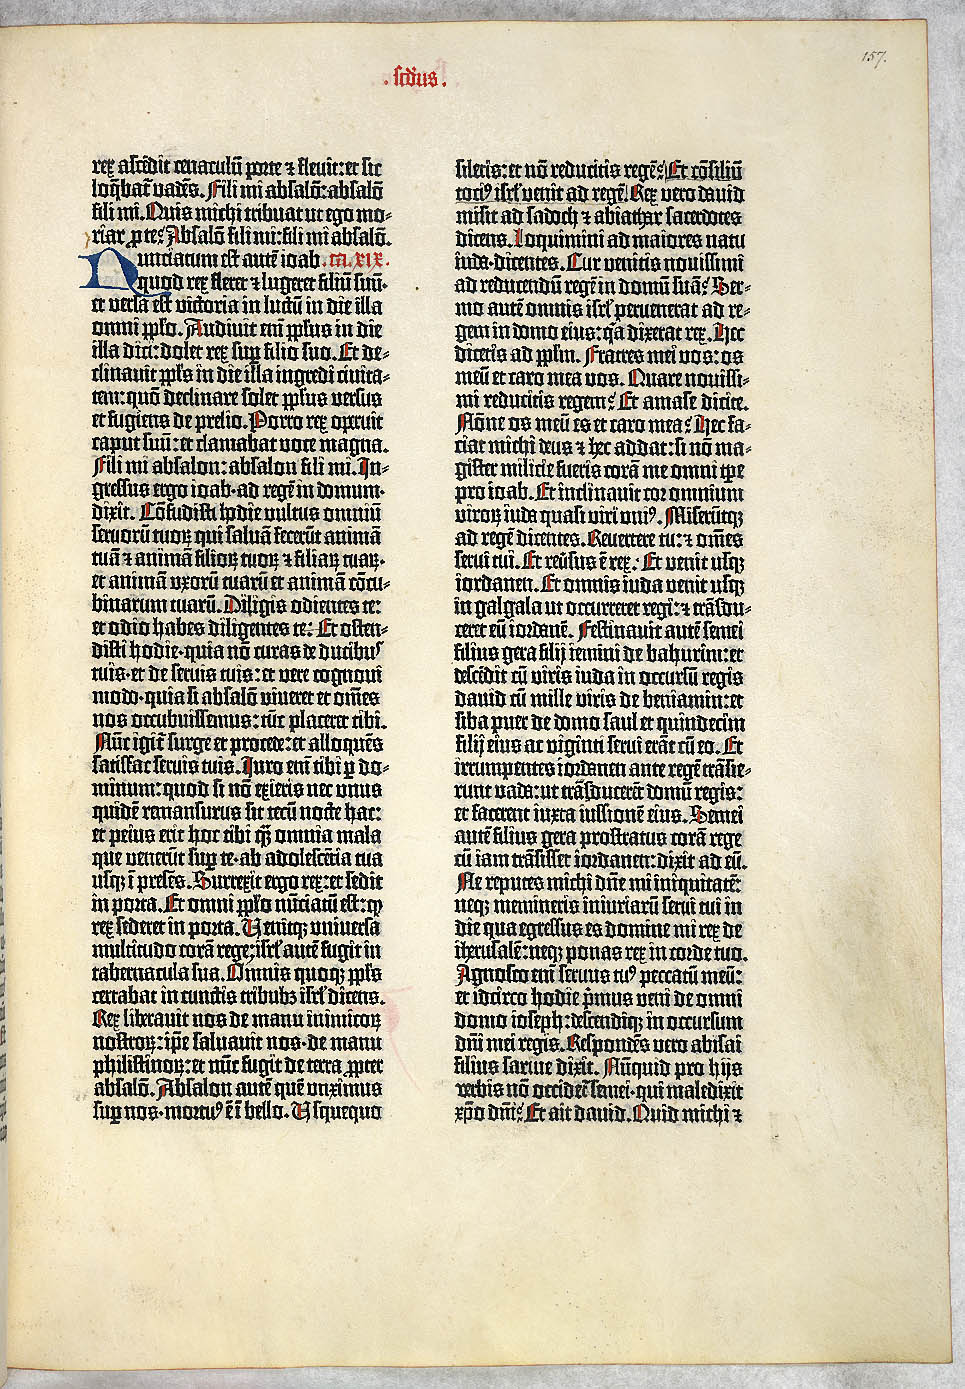 157.
. scd'us .
rex ascēdit cenaculū porte ⁊ flevit: et sic
loq̄bat᷑ vadēs. Fili mi absalō: absalō
fili mi. Quis michi tribuat ut ego mo-
riar p̱ te? Absalō fili mi: fili mi absalō.
Nunciatum est autē ioab . ca. xix.
quod rex fleret ⁊ lugeret filiū suū.
et versa est victoria in luctū in die illa
omni pp̱lo. Audiuit enī pp̱lus in die
illa dici: dolet rex sup̱ filio suo. Et de-
clinauit pp̱ls in die illa ingredi ciuita-
tem: quō declinare solet pp̱lus versus
et fugiens de prelio. Porro rex operuit
caput suū: et clamabat voce magna.
Fili mi absalon: absalon fili mi. In-
gressus ergo ioab ad regē in domum.
dixit. Cōfudisti hodie vultus omniū
seruorū tuoꝝ qui saluā fecerūt animā
tuā ⁊ animā filioꝝ tuoꝝ ⁊ filiaꝝ tuaꝝ.
et animā vxorū tuarū et animā cōcu-
binarum tuarū. Diligis odientes te:
et odio habes diligentes te: Et osten-
disti hodie quia nō curas de ducibus
tuis et de seruis tuis: et vere cognoui
modo quia si absalō viueret et om̄es
nos occubuissemus: tūc placeret tibi.
Nūc igit᷑ surge et procede: et alloquēs
satisfac seruis tuis. Iuro enī tibi p̱ do-
minum: quod si nō exieris nec vnus
quidē remansurus sit tecū nocte hac:
et peius erit hoc tibi q̄ omnia mala
que venerūt sup̱ te ab adolescētia tua
usqꝫ ī presēs. Surrexit ergo rex: et sedit
in porta. Et omni pp̱lo nūciatū est: ꝙ
rex sederet in porta. Venitqꝫ vniuersa
multitudo corā rege: isrl' autē fugit in
tabernacula sua. Omnis quoqꝫ pp̱ls
certabat in cunctis tribubꝫ isrl' dicens.
Rex liberauit nos de manu inimicoꝝ
nostroꝝ: ip̄e saluauit nos de manu
philistinoꝝ: et nūc fugit de terra p̱pter
absalō. Absalon autē quē vnximus
sup̱ nos mortuꝰ ē ī bello. Vsquequo
siletis: et nō reducitis regē? Et cōsiliū
totiꝰ isrl' venit ad regē. Rex vero dauid
misit ad sadoch ⁊ abiathar sacerdotes
dicens. Loquimini ad maiores natu
iuda dicentes. Cur venitis nouissimi
ad reducendū regē in domū suā? Ser-
mo autē omnis isrl' peruenerat ad re-
gem in domo eius: q̄a dixerat rex. Hec
dicetis ad pp̱lm. Fratres mei vos: os
meū et caro mea vos. Quare nouissi-
mi reducitis regem? Et amase dicite.
Nōne os meū es et caro mea? Hec fa-
ciat michi deus ⁊ hec addat: si nō ma-
gister milicie fueris corā me omni tp̄e
pro ioab. Et inclinauit cor omnium
viroꝝ iuda quasi viri vniꝰ. Miserūtqꝫ
ad regē dicentes. Reuertere tu: ⁊ om̄es
serui tui. Et reūsus ē rex. Et venit usqꝫ
iordanen. Et omnis iuda venit usqꝫ
in galgala ut occurreret regi: ⁊ trāsdu-
ceret eū iordanē. Festinauit autē semei
filius gera filij iemini de bahurim: et
descēdit cū viris iuda in occursū regis
dauid cū mille viris de beniamin: et
siba puer de domo saul et quindecim
filij eius ac viginti serui erāt cū eo. Et
irrumpentes iordanen ante regē trāsie-
runt vada: ut trāsducerēt domū regis:
et facerent iuxta iussionē eius. Semei
autē filius gera prostratus corā rege
cū iam trāsisset iordanen: dixit ad eū.
Ne reputes michi dn̄e mi iniquitatē:
neqꝫ memineris iniuriarū serui tui in
die qua egressus es domine mi rex de
iherusalē: neqꝫ ponas rex in corde tuo.
Agnosco enī seruus tuꝰ peccatū meū:
et idcirco hodie p̄mus veni de omni
domo ioseph: descendiqꝫ in occursum
dn̄i mei regis. Respondēs vero abisai
filius saruie dixit. Nūquid pro hijs
verbis nō occidet᷑ semei qui maledixit
xp̄o dn̄i? Et ait dauid. Quid michi ⁊